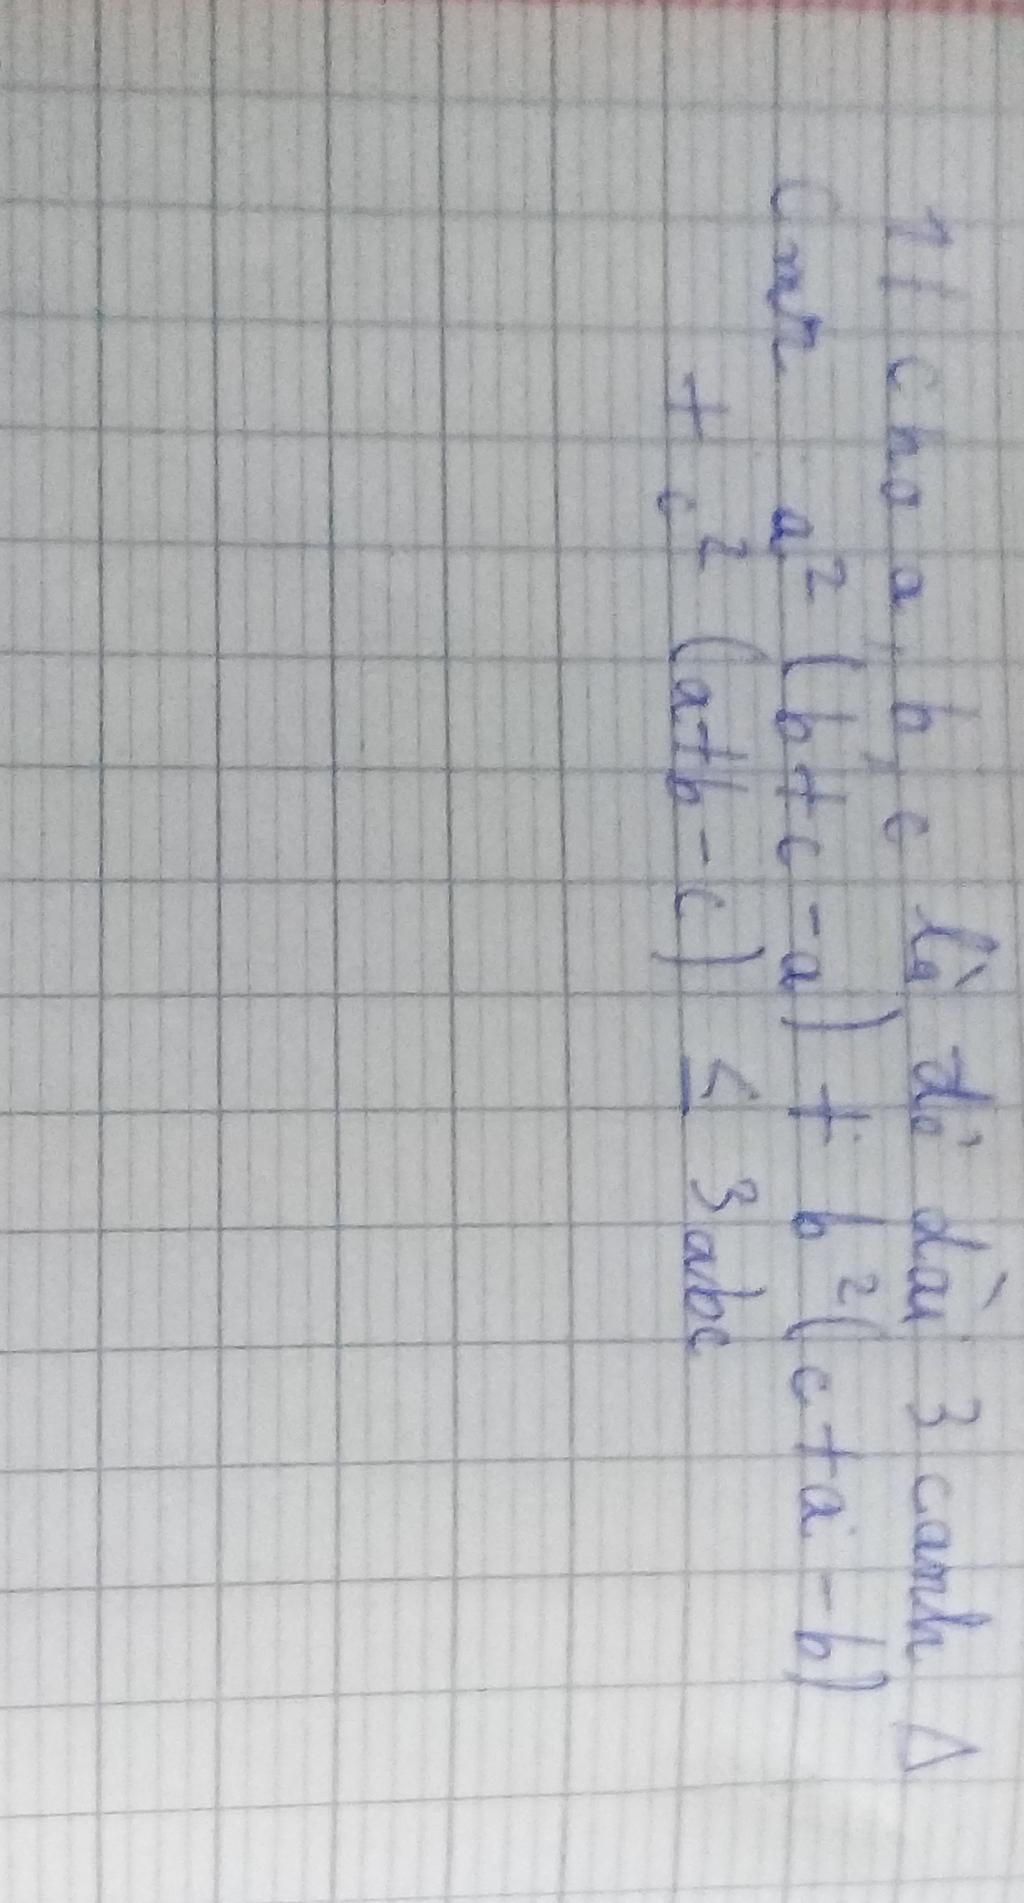 1/ cho a, b, c là độ dài 3 cạnh Δ
Cmr a²(b+c-a) + b²(c+a-b)
+ c²(a+b-c) ≤ 3abc